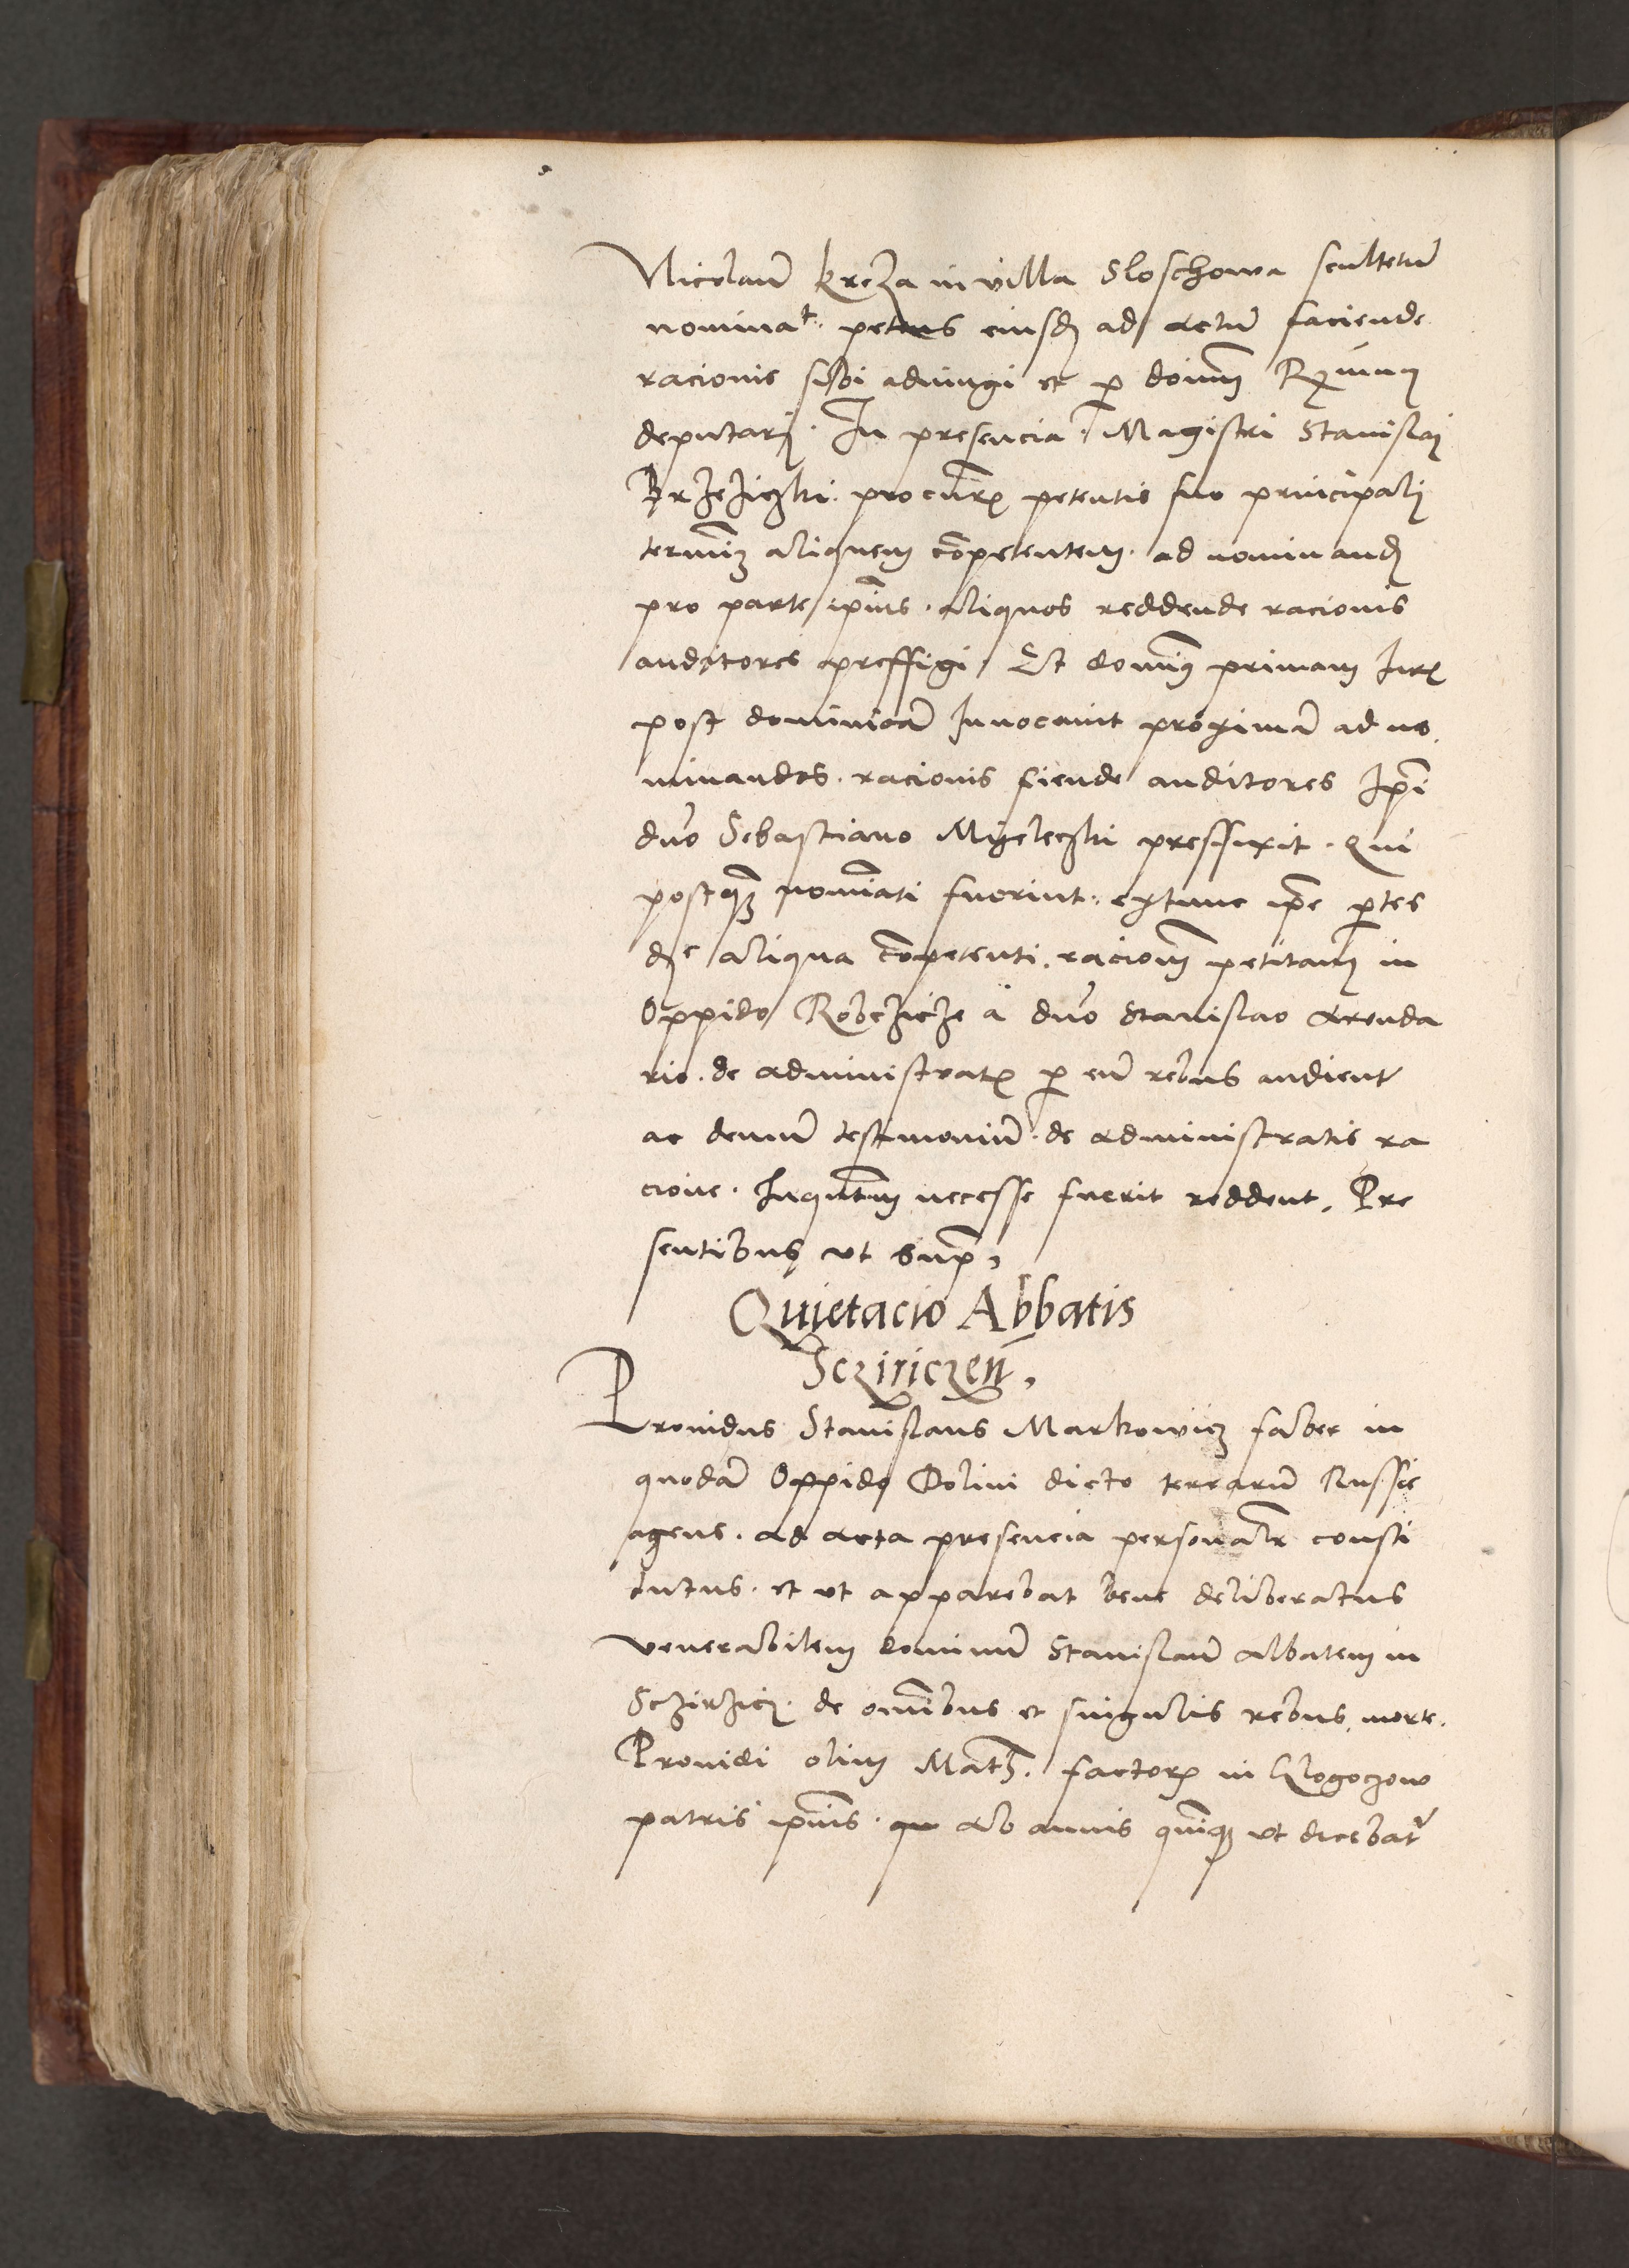 Nicolaum kreza in villa Sloschowa scultetum
nominat. petens eiusdem ad actum faciende
racionis sibi adiungi et per dominum Rmum
deputari. In presencia Magistri Stanislai
Brzeziczki procuratoris petentis suo principali
terminum aliquem competentem ad nominandum
pro parte ipsius aliquos reddende racionis
auditores preffigi. Et dominus primam Juris
post dominicam Invocavit proximam ad no
minandos racionis fiende auditores Ipsi
domino Sebastiano Myeleczki preffixit. Qui
postquam nominati fuerint extunc ipse partes
die aliqua competenti racionem petitam in
Oppido Robczicze a domino Stanislao Arenda
rio de administratis per eum rebus audient
ac demum testimonium de administratis ra
cione Inquantum necesse fuerit reddent. Pre
sentibus ut supra,
Quietacio Abbatis
Scziriczen,
Providus Stanislaus Markowicz faber in
quodam Oppido Dolini dicto terrarum Russie
agens ad acta presencia personaliter consti
tutus et ut apparebat bene deliberatus
venerabilem dominum Stanislaum Abbatem in
Sczirzicz de omnibus et singulis rebus morte
Providi olim Math. factoris in Glogoczow
patris ipsius ab annis quinque ut dicebatur